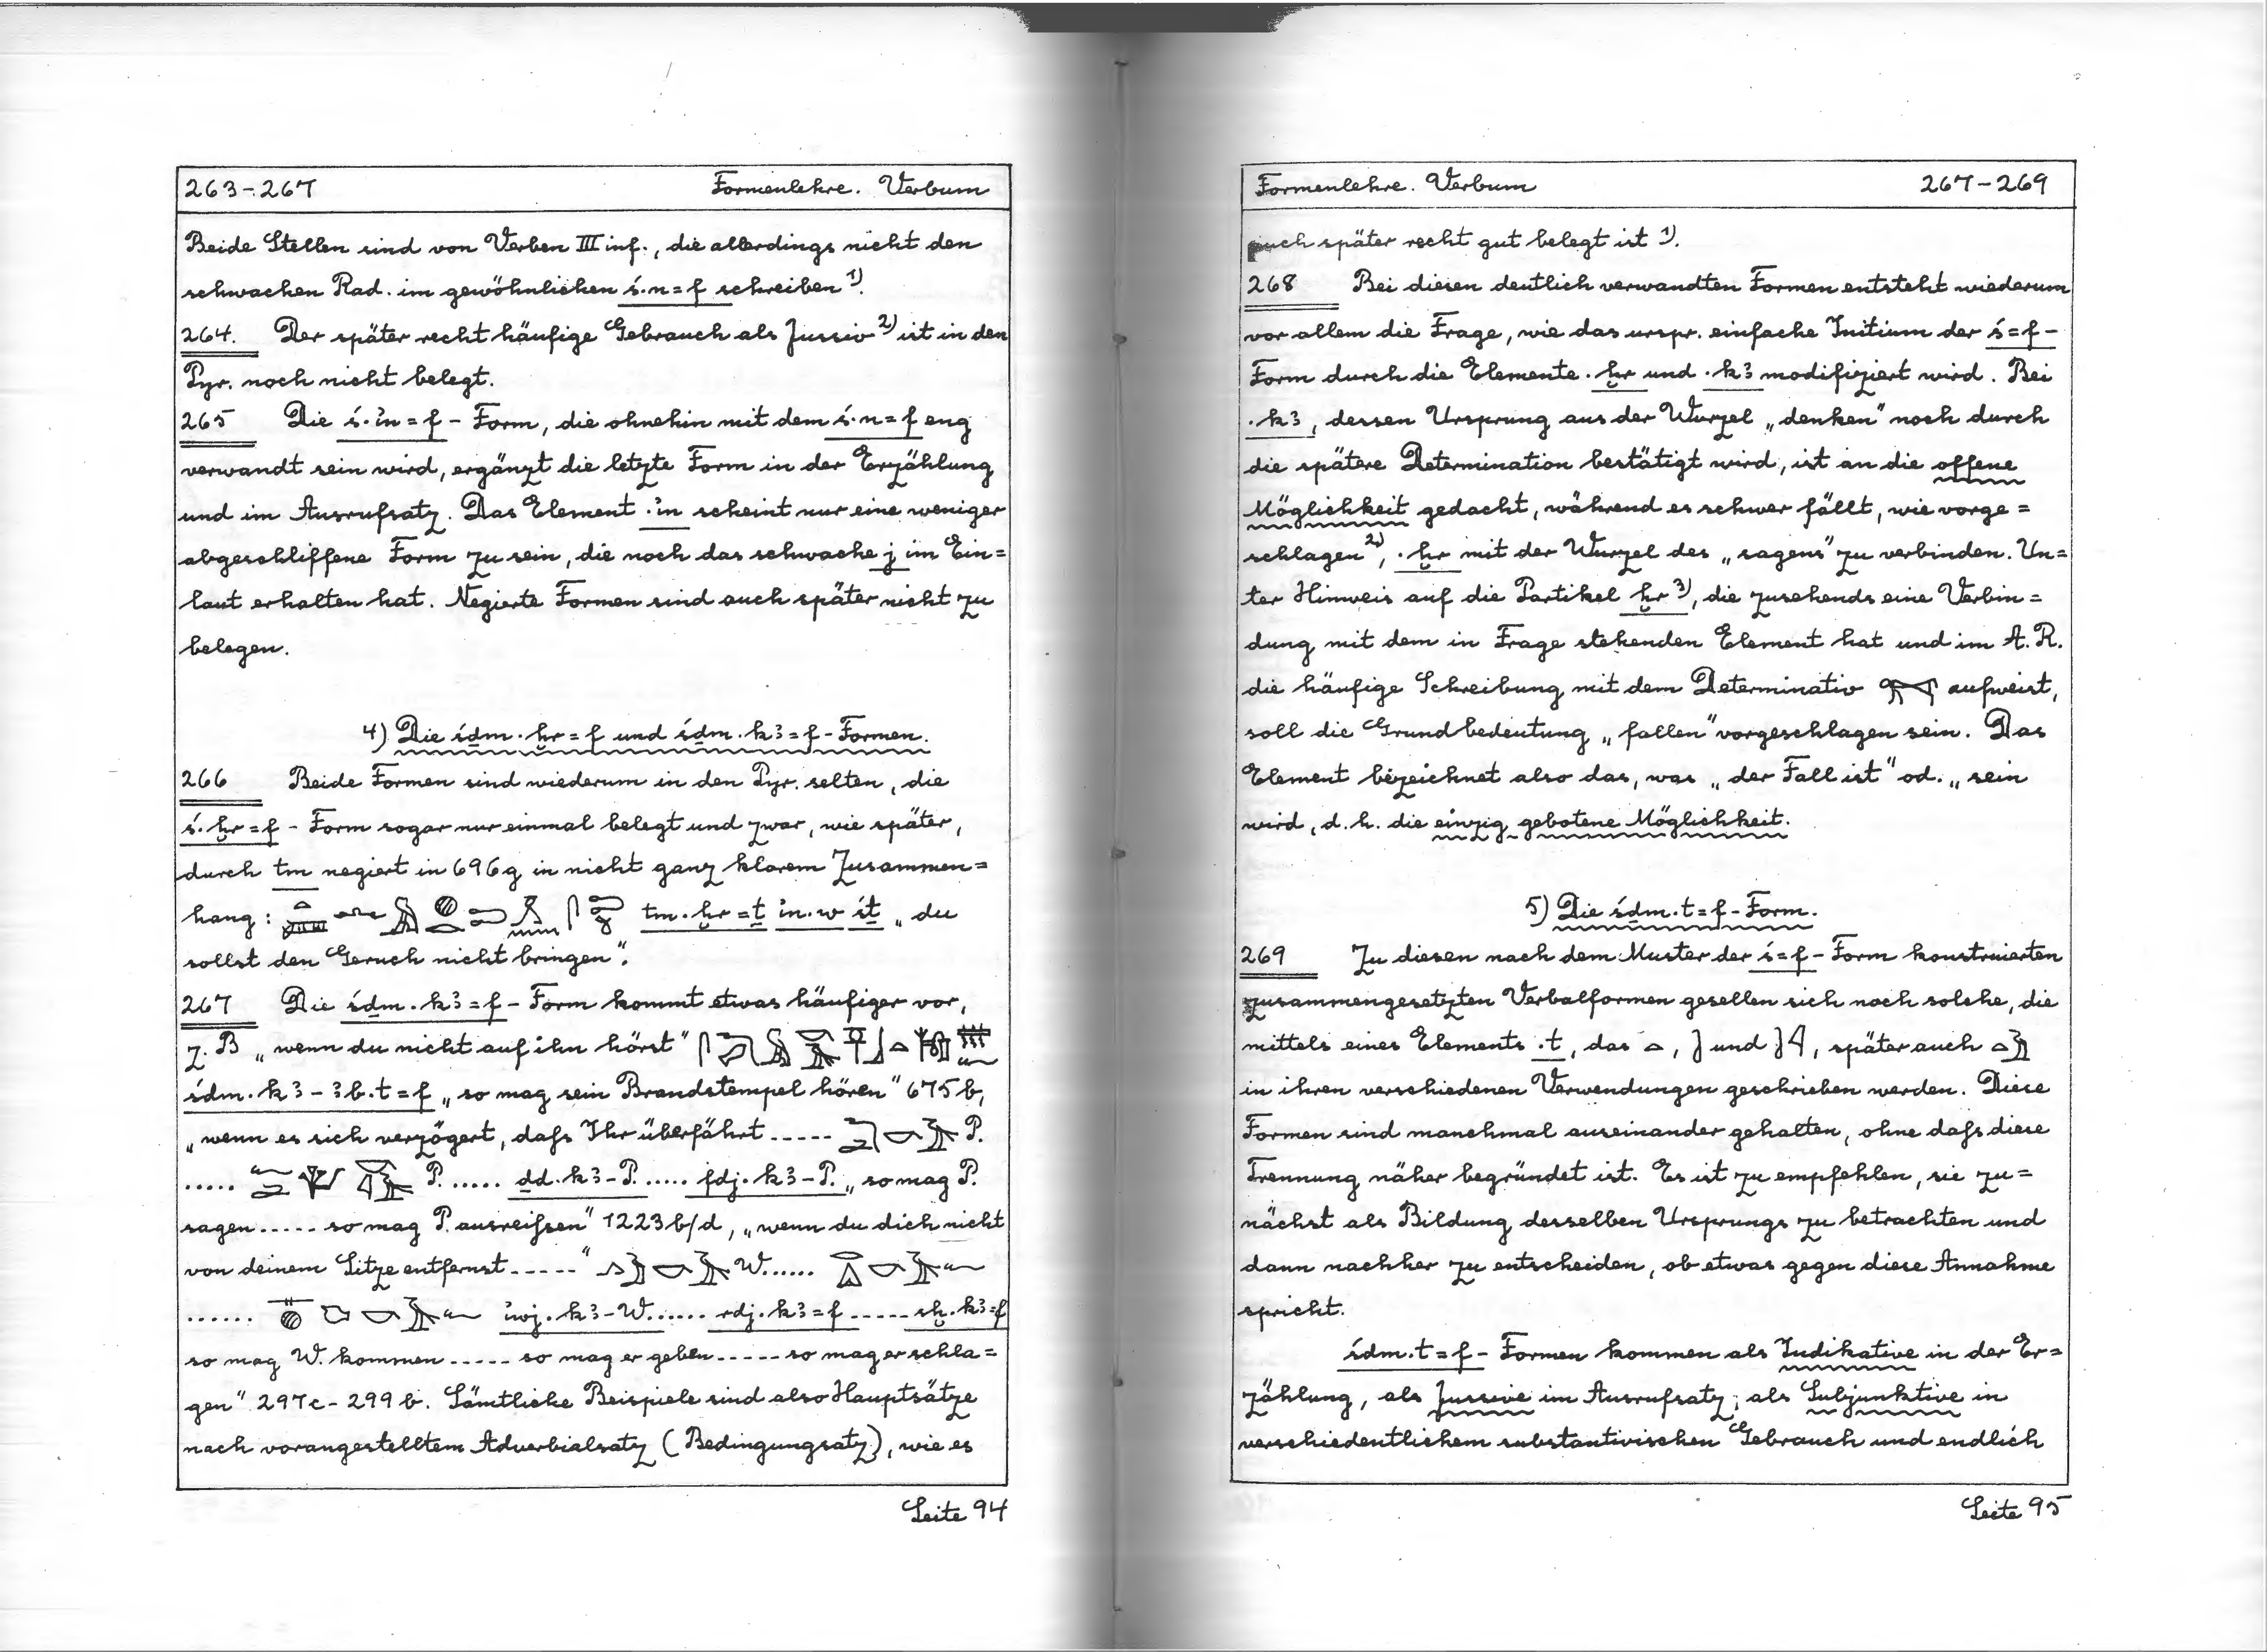 263-267 Formenlehre. Verbum
Beide Stellen sind von Verben III inf., die allerdings nicht den
schwachen Rad. im gewöhnlichen ś·n=f schreiben 1).
264. Der später recht häufige Gebrauch als Jussiv 2) ist in den
Pyr. noch nicht belegt.
265 Die ś·ỉn=f - Form, die ohnehin mit dem ś·n=f eng
verwandt sein wird, ergänzt die letzte Form in der Erzählung
und im Ausrufsatz. Das Element ·ỉn scheint nur eine weniger
abgeschliffene Form zu sein, die noch das schwache j im Ein=
laut erhalten hat. Negierte Formen sind auch später nicht zu
belegen.
4) Die śḏm·ḫr=f und śḏm·kꜣ=f-Formen.
266 Beide Formen sind wiederum in den Pyr. selten, die
ś·ḫr=f - Form sogar nur einmal belegt und zwar, wie später,
durch tm negiert in 696g in nicht ganz klarem Zusammen=
hang: tm·ḫr=ṯ ỉn·w śṯ „du
sollst den Geruch nicht bringen".
267 Die śḏm·kꜣ=f - Form kommt etwas häufiger vor,
z.B „wenn du nicht auf ihn hörst"
śḏm·kꜣ-ꜣb·t=f „so mag sein Brandstempel hören" 675b,
„wenn es sich verzögert, daß Ihr überfährt ..... P.
..... P. ..... ḏd·kꜣ-P. ..... fdj·kꜣ-P. „so mag P.
sagen ..... so mag P. ausreißen" 1223b/d, „wenn du dich nicht
von deinem Sitze entfernst ....." W. .....
...... ỉwj·kꜣ-W. ..... rdj·kꜣ=f ..... sḫ·kꜣ=f
so mag W. kommen ..... so mag er geben ..... so mag er schla=
gen" 297c-299b. Sämtliche Beispiele sind also Hauptsätze
nach vorangestelltem Adverbialsatz (Bedingungssatz), wie es
Seite 94
Formenlehre. Verbum 267-269
auch später recht gut belegt ist 1).
268 Bei diesen deutlich verwandten Formen entsteht wiederum
vor allem die Frage, wie das urspr. einfache Initium der ś=f-
Form durch die Elemente ·ḫr und ·kꜣ modifiziert wird. Bei
·kꜣ, dessen Ursprung aus der Wurzel „denken" noch durch
die spätere Determination bestätigt wird, ist an die offene
Möglichkeit gedacht, während es schwer fällt, wie vorge=
schlagen 2), ·ḫr mit der Wurzel des „sagens" zu verbinden. Un=
ter Hinweis auf die Partikel ḫr 3), die zusehends eine Verbin=
dung mit dem in Frage stehenden Element hat und im A.R.
die häufige Schreibung mit dem Determinativ aufweist,
soll die Grundbedeutung „fallen" vorgeschlagen sein. Das
Element bezeichnet also das, was „der Fall ist" od. „sein
wird, d.h. die einzig gebotene Möglichkeit.
5) Die śḏm·t=f-Form.
269 Zu diesen nach dem Muster der ś=f-Form konstruierten
zusammengesetzten Verbalformen gesellen sich noch solche, die
mittels eines Elements ·t, das , und , später auch
in ihren verschiedenen Verwendungen geschrieben werden. Diese
Formen sind manchmal auseinander gehalten, ohne daß diese
Trennung näher begründet ist. Es ist zu empfehlen, sie zu=
nächst als Bildung desselben Ursprungs zu betrachten und
dann nachher zu entscheiden, ob etwas gegen diese Annahme
spricht.
śḏm·t=f - Formen kommen als Indikative in der Er=
zählung, als Jussive im Ausrufsatz, als Subjunktive in
verschiedentlichem substantivischen Gebrauch und endlich
Seite 95